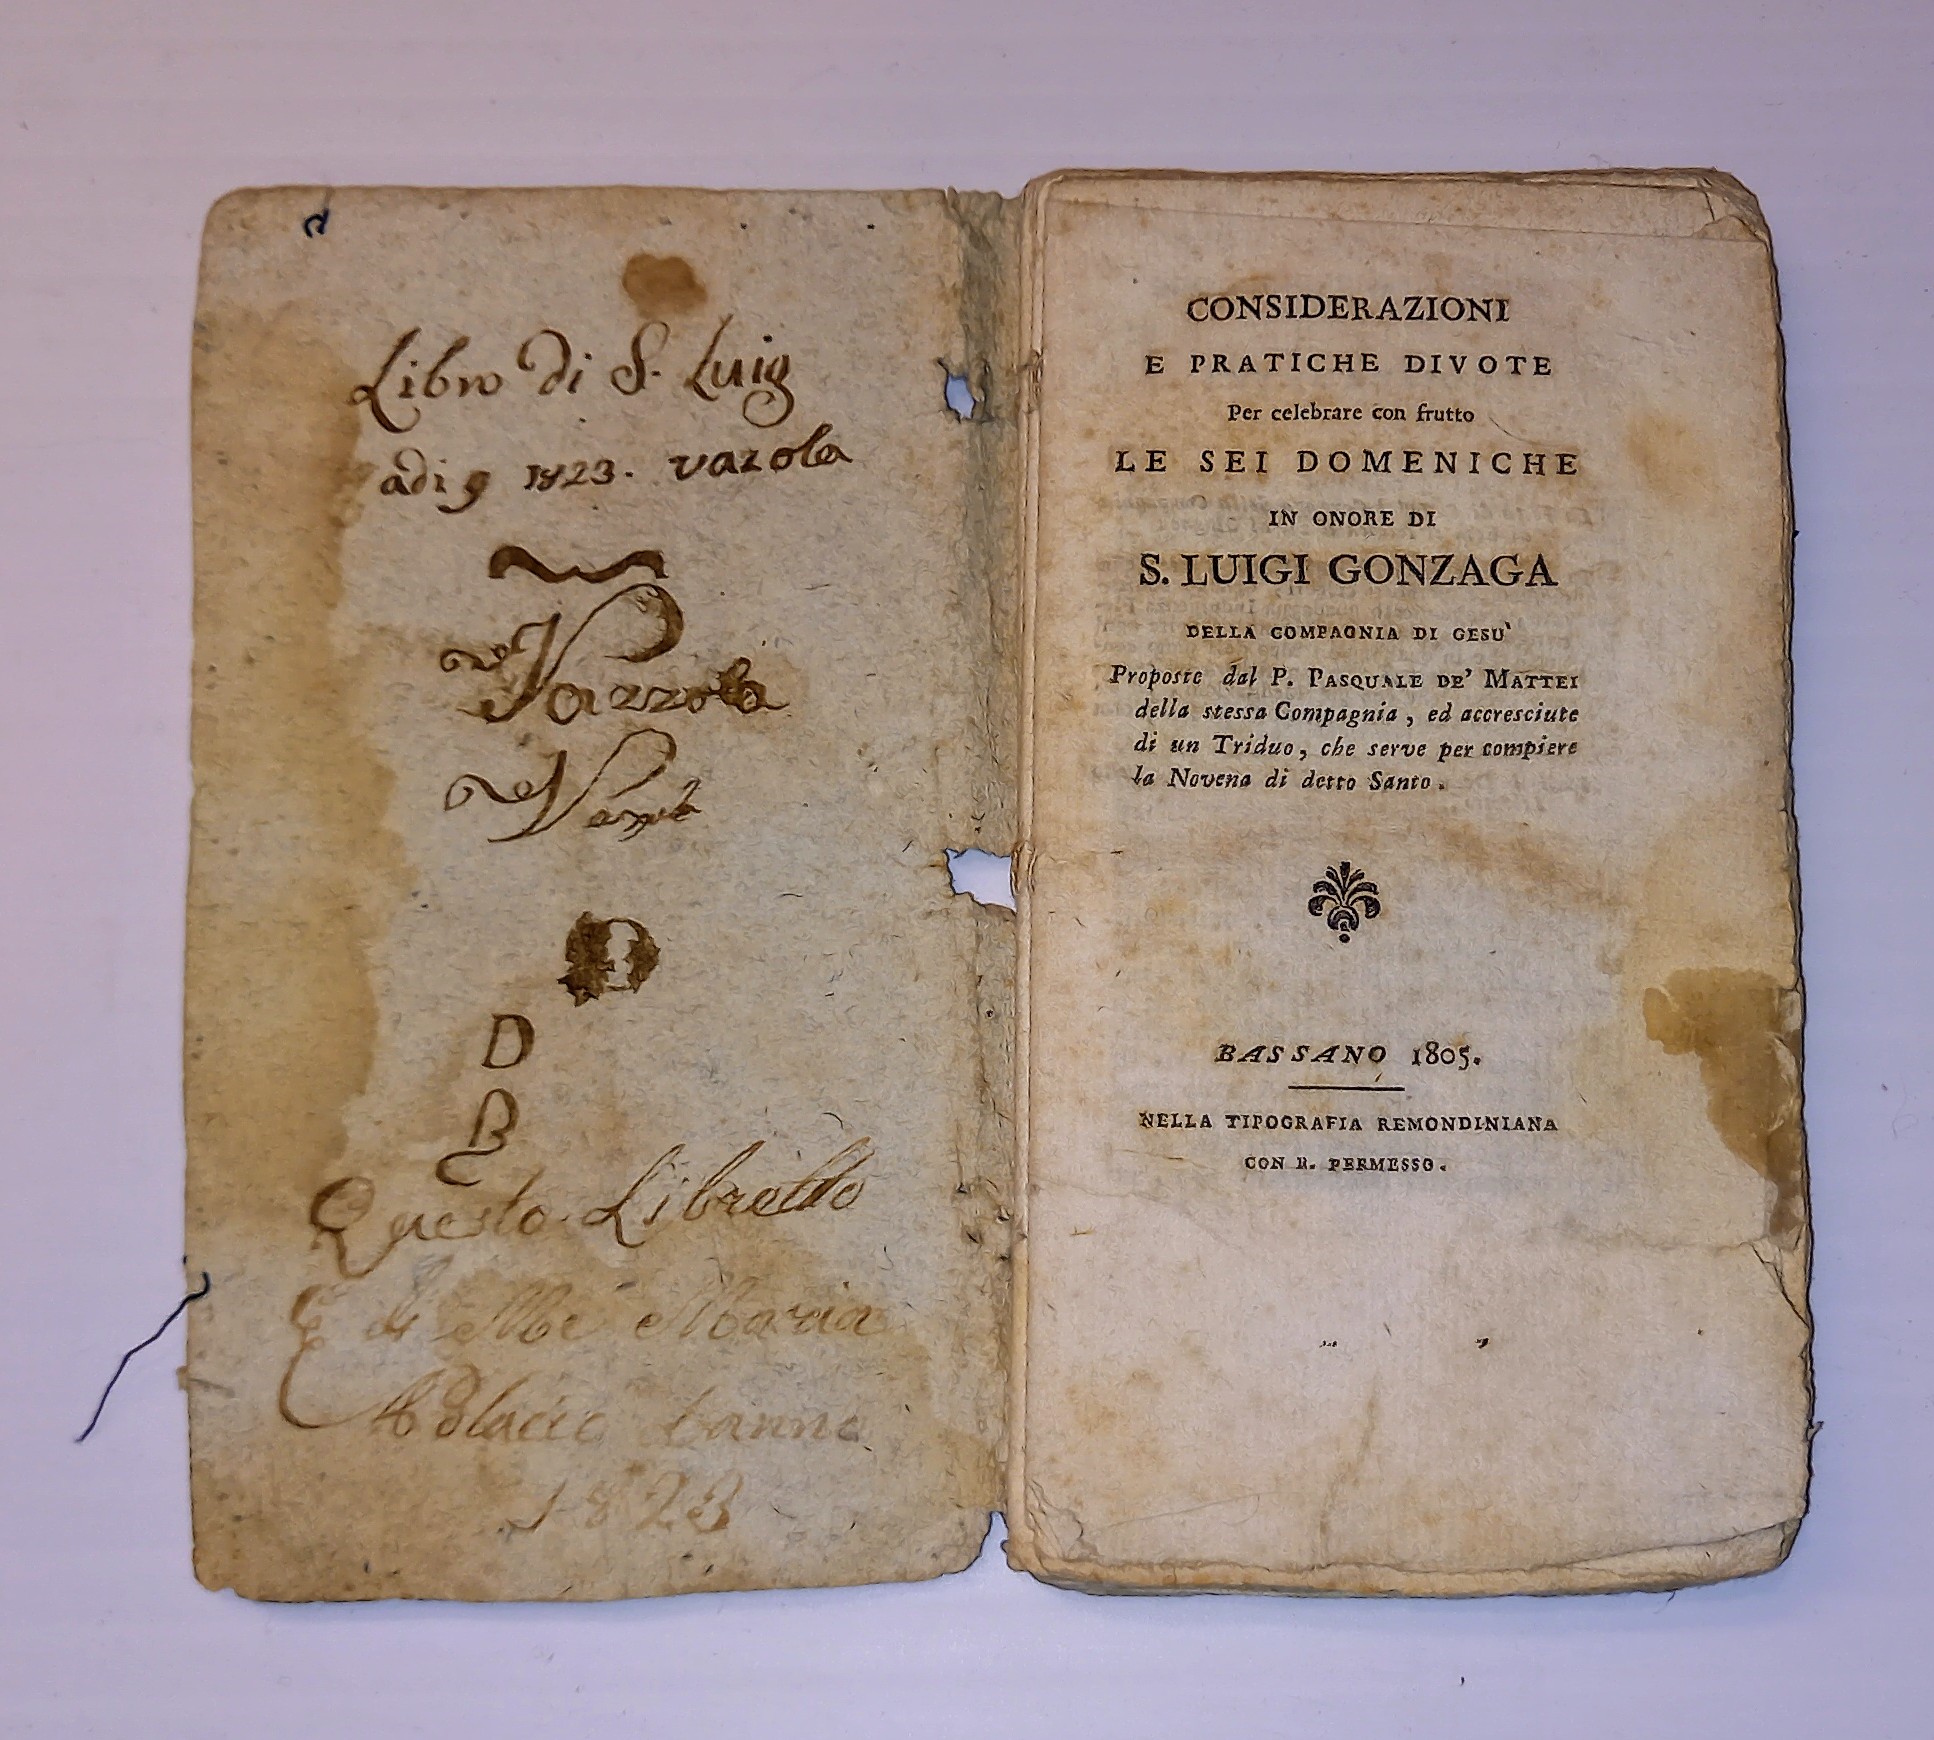 Libro di S. Luig
adi 9 1823. vazola
Vazzola
D
B
Questo Libretto
E di Me Maria
1823
CONSIDERAZIONI
E PRATICHE DIVOTE
Per celebrare con frutto
LE SEI DOMENICHE
IN ONORE DI
S. LUIGI GONZAGA
DELLA COMPAGNIA DI GESU'
Proposte dal P. PASQUALE DE' MATTEI
della stessa Compagnia, ed accresciute
di un Triduo, che serve per compiere
la Novena di detto Santo.
BASSANO 1805.
NELLA TIPOGRAFIA REMONDINIANA
CON R. PERMESSO.